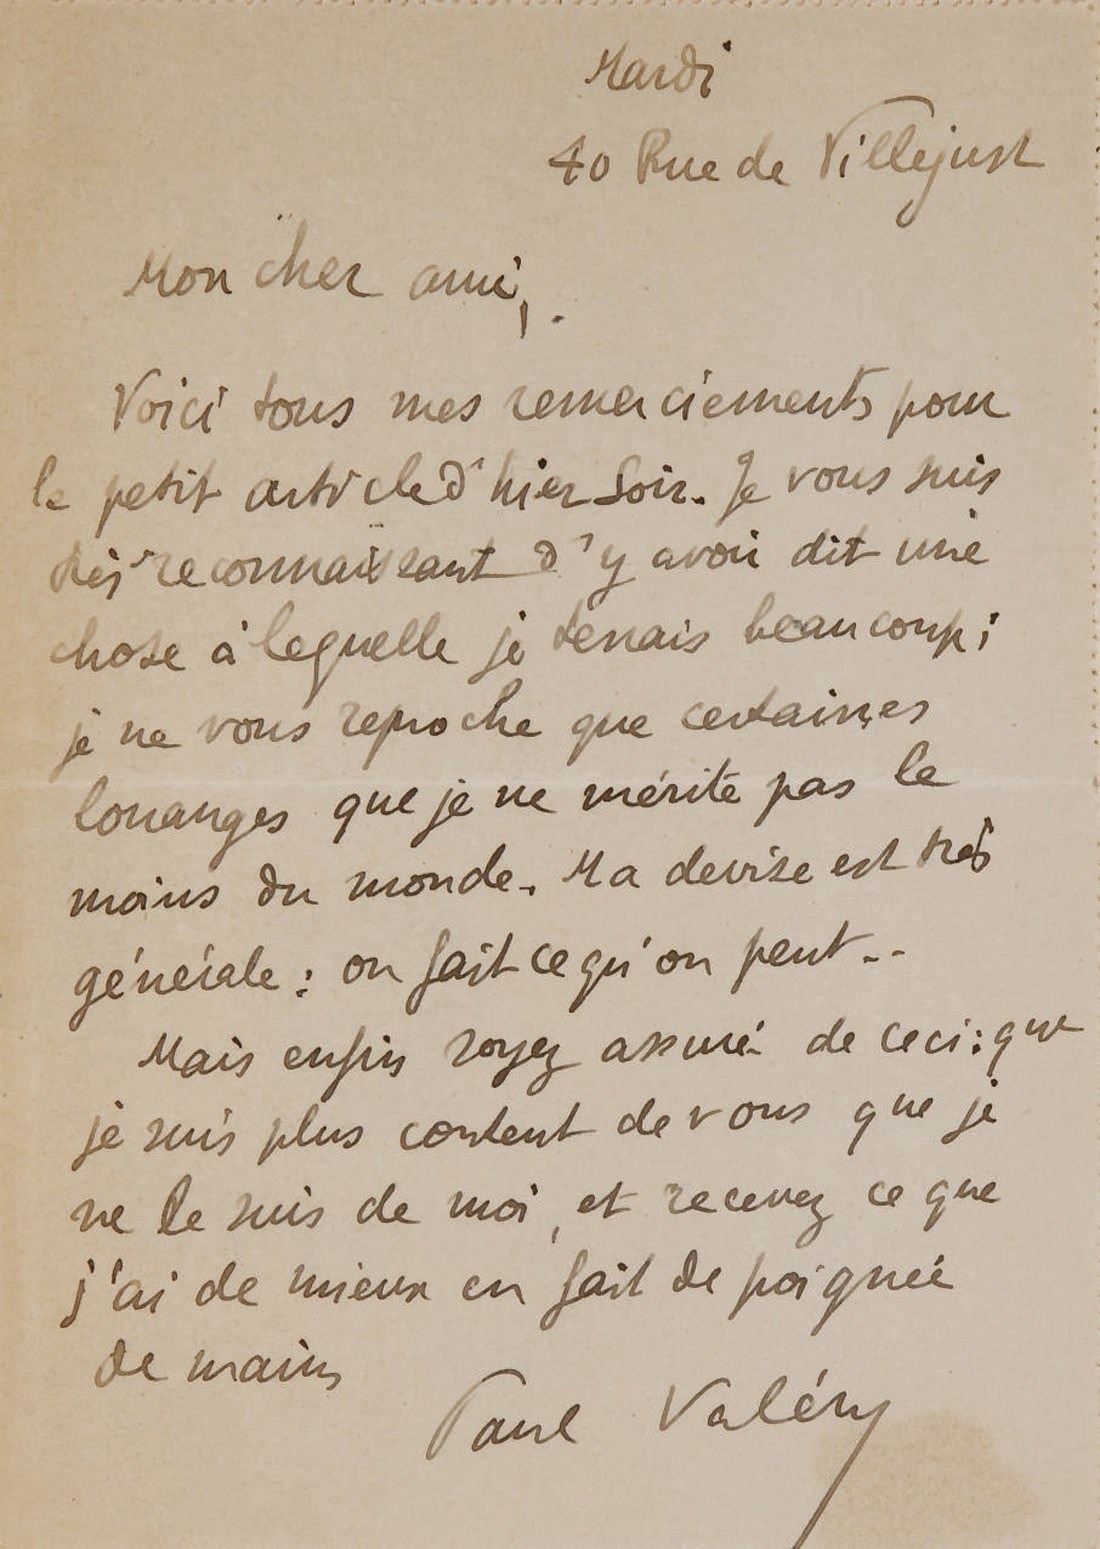 Mardi
40 Rue de Villejust
Mon cher ami,
Voici tous mes remerciements pour
le petit article d'hier soir. Je vous suis
très reconnaissant d'y avoir dit une
chose à laquelle je tenais beaucoup ;
je ne vous reproche que certaines
louanges que je ne mérite pas le
moins du monde. Ma devise est très
générale : on fait ce qu'on peut..
Mais enfin soyez assuré de ceci : que
je suis plus content de vous que je
ne le suis de moi, et recevez ce que
j'ai de mieux en fait de poignée
de mains
Paul Valéry